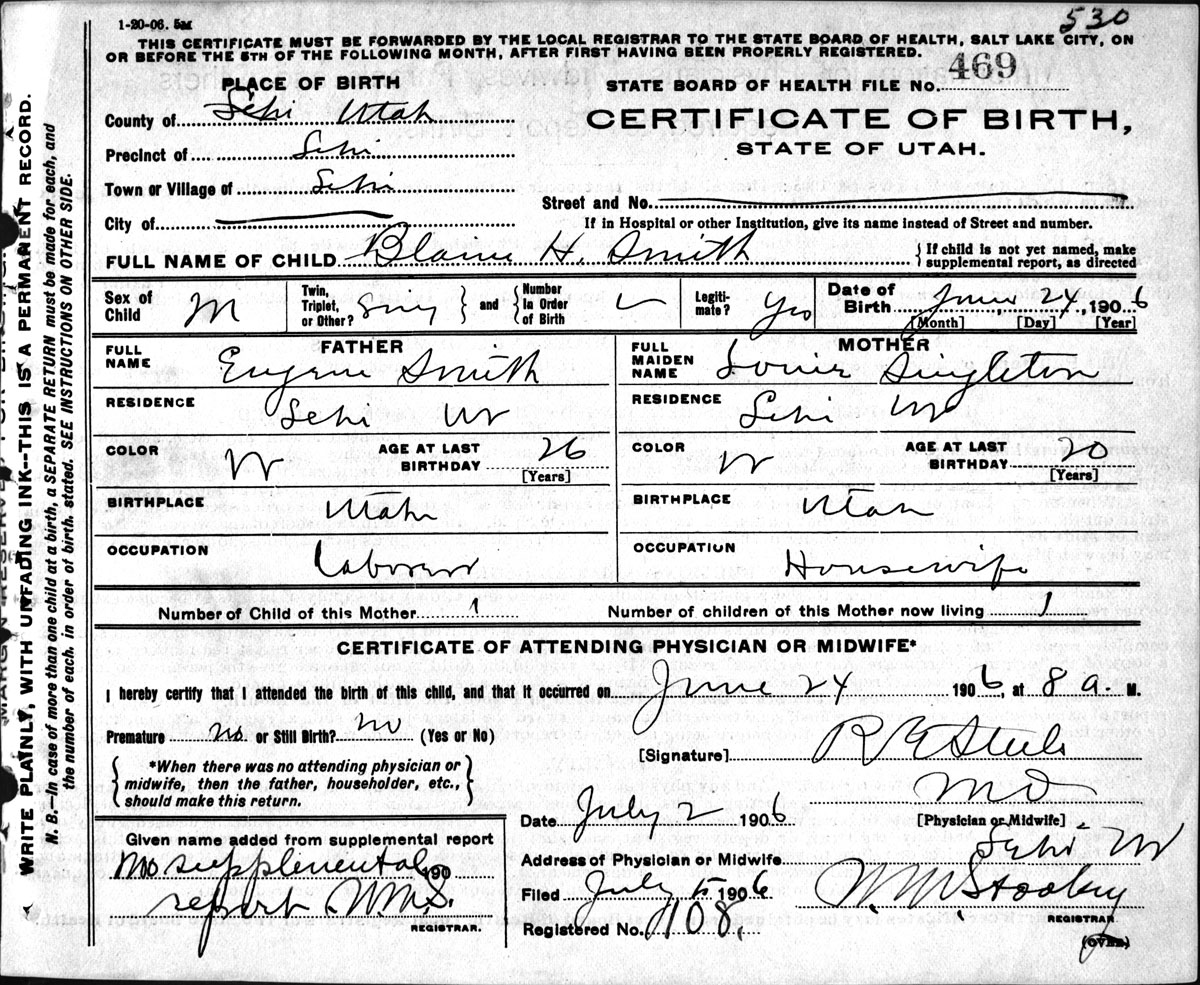 530
1-20-06. 5M
THIS CERTIFICATE MUST BE FORWARDED BY THE LOCAL REGISTRAR TO THE STATE BOARD OF HEALTH, SALT LAKE CITY, ON
OR BEFORE THE 5TH OF THE FOLLOWING MONTH, AFTER FIRST HAVING BEEN PROPERLY REGISTERED.
PLACE OF BIRTH
STATE BOARD OF HEALTH FILE NO. 469
County of Lehi Utah
CERTIFICATE OF BIRTH,
STATE OF UTAH.
Precinct of Lehi
Town or Village of Lehi
Street and No.
City of
If in Hospital or other Institution, give its name instead of Street and number.
FULL NAME OF CHILD Blaine H. Smith { If child is not yet named, make
supplemental report, as directed
Sex of Child M Twin, Triplet, or Other? Sing } and { Number in Order of Birth Legiti-mate? Yes Date of Birth June 24, 1906
[Month] [Day] [Year]
FATHER
MOTHER
FULL NAME Eugene Smith
FULL MAIDEN NAME Singleton
RESIDENCE Lehi Ut
RESIDENCE Lehi Ut
COLOR W AGE AT LAST BIRTHDAY 26 [Years]
COLOR W AGE AT LAST BIRTHDAY 20 [Years]
BIRTHPLACE Utah
BIRTHPLACE Utah
OCCUPATION Laborer
OCCUPATION Housewife
Number of Child of this Mother 1 Number of children of this Mother now living 1
CERTIFICATE OF ATTENDING PHYSICIAN OR MIDWIFE*
I hereby certify that I attended the birth of this child, and that it occurred on June 24 1906, at 8 a. M.
Premature no or Still Birth? no (Yes or No)
[Signature] R E Steele
M D
[Physician or Midwife]
{ *When there was no attending physician or
midwife, then the father, householder, etc.,
should make this return. }
Date July 2 1906
Given name added from supplemental report
No supplemental 190
report. W.M.S.
REGISTRAR.
Address of Physician or Midwife Lehi Ut
Filed July 5 1906 W. M. Stookey
REGISTRAR.
Registered No. 108.
(OVER)
WRITE PLAINLY, WITH UNFADING INK--THIS IS A PERMANENT RECORD.
N. B.--In case of more than one child at a birth, a SEPARATE RETURN must be made for each, and
the number of each, in order of birth, stated. SEE INSTRUCTIONS ON OTHER SIDE.